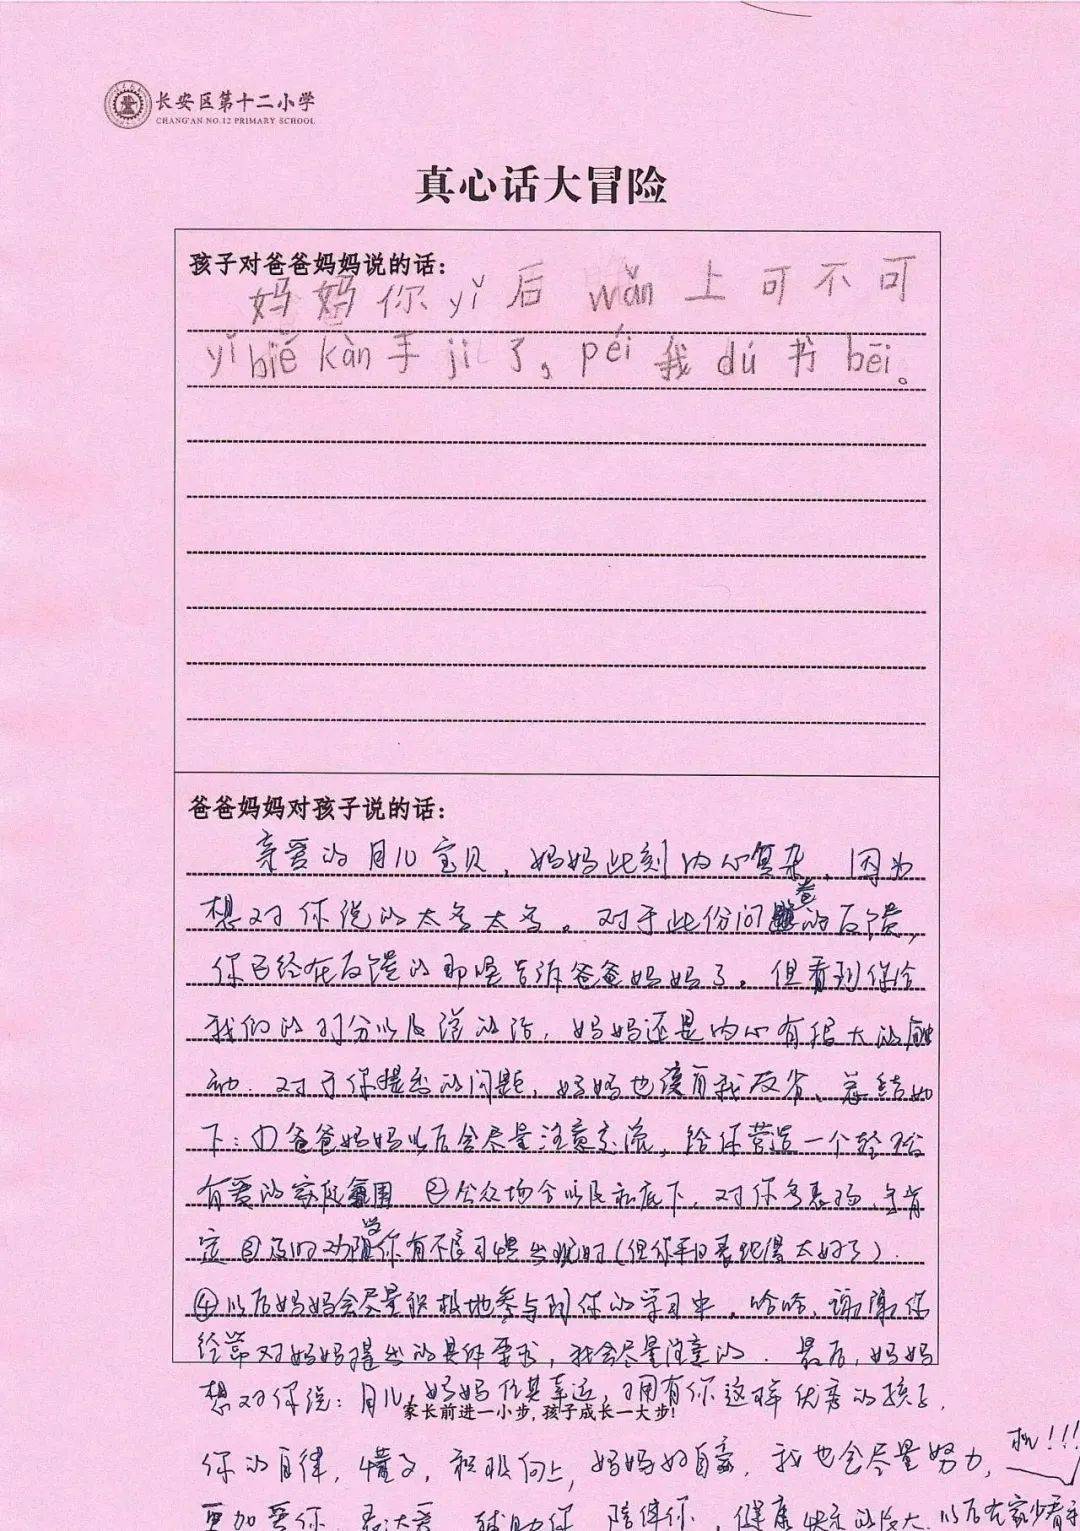 长安区第十二小学
CHANG'AN NO.12 PRIMARY SCHOOL
真心话大冒险
孩子对爸爸妈妈说的话：
妈妈你yǐ后 wǎn上可不可
yǐ biě kàn手ji了，péi我dú书bēi。
爸爸妈妈对孩子说的话：
亲爱的月儿宝贝，妈妈此刻内心复杂，因为
想对你说的太多太多。对于此份问卷的反馈，
你已经在反馈的那里告诉爸爸妈妈了。但看到你给
我们的打分以及说的话，妈妈还是内心有很大的触
动。对于你提到的问题，妈妈也该自我反省、总结如
下：①爸爸妈妈以后会尽量注意交流，给你营造一个轻松
有爱的家庭氛围 ②公众场合以及私底下，对你多表扬，多肯
定 ③及时劝导你有不良习惯出现时（但你平日表现得太好了）.
④以后妈妈会尽量积极地参与到你的学习中。哈哈，谢谢你
对妈妈提出的具体要求，我会尽量注意的. 最后，妈妈
想对你说：月儿，妈妈何其幸运，拥有你这样优秀的孩子，
家长前进一小步，孩子成长一大步！
你的自律，懂事，积极向上，妈妈好自豪，我也会尽量努力，
更加爱你，表达爱，辅助你，陪伴你，健康快乐的长大.以后在家少看手
机!!!